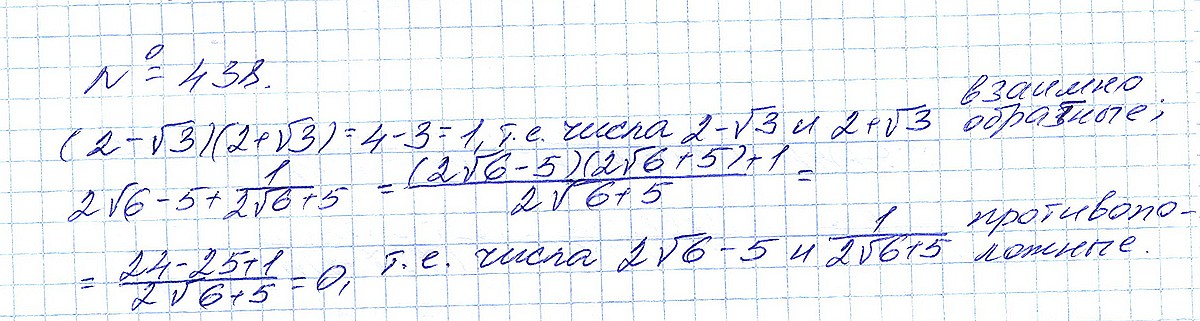 № 438.
(2-√3)(2+√3)=4-3=1, т.е. числа 2-√3 и 2+√3 взаимно обратные;
2√6-5+1/(2√6+5) = ((2√6-5)(2√6+5)+1)/(2√6+5) =
= (24-25+1)/(2√6+5) = 0, т.е. числа 2√6-5 и 1/(2√6+5) противоположные.